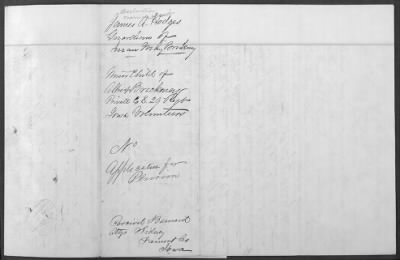 James A. Hodges
Guardian of
Brickney
Minor Child of
Albert Brickney
Private Co E. 29 Regt
Iowa Volunteers
No
Application for
Pension
Percival & Barnard
Attys Sidney
Fremont Co
Iowa